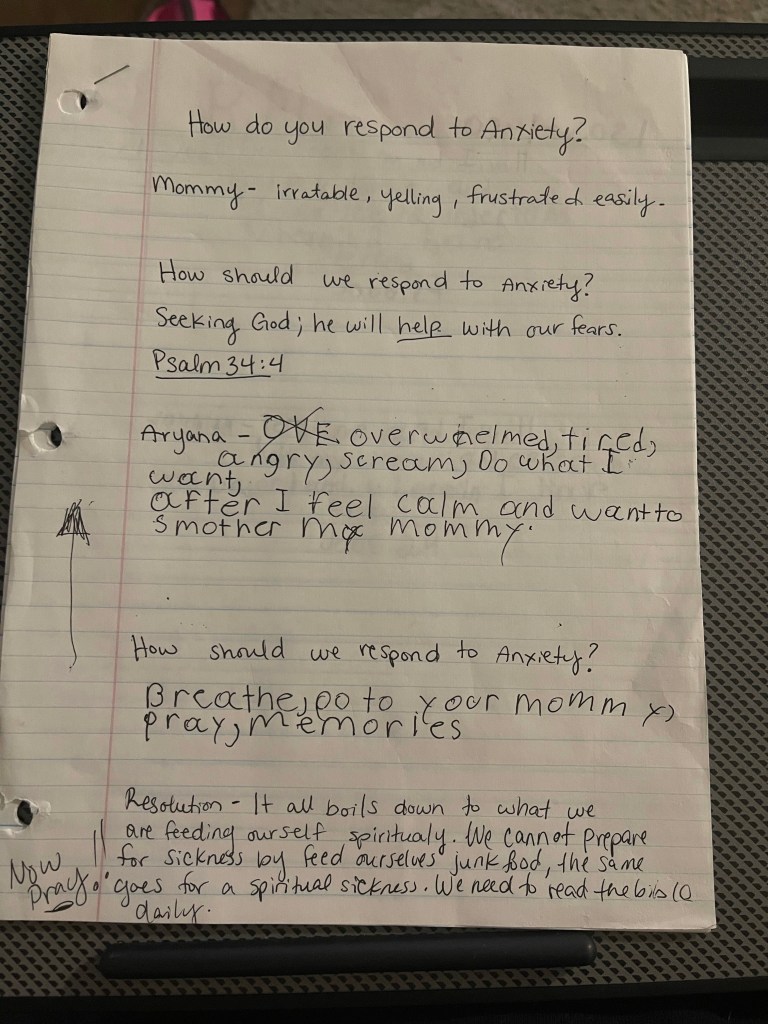 How do you respond to Anxiety?
Mommy - irratable, yelling, frustrated easily.
How should we respond to Anxiety?
Seeking God; he will help with our fears.
Psalm 34:4
Aryana - OVE overwhelmed, tired,
angry, scream, Do what I
want,
after I feel calm and want to
smother my mommy.
How should we respond to Anxiety?
Breathe, go to your mommy,
pray, memories
Resolution - It all boils down to what we
are feeding ourself spiritualy. We cannot prepare
for sickness by feed ourselves junk food, the same
goes for a spiritual sickness. We need to read the bible
daily.
Now
Pray!